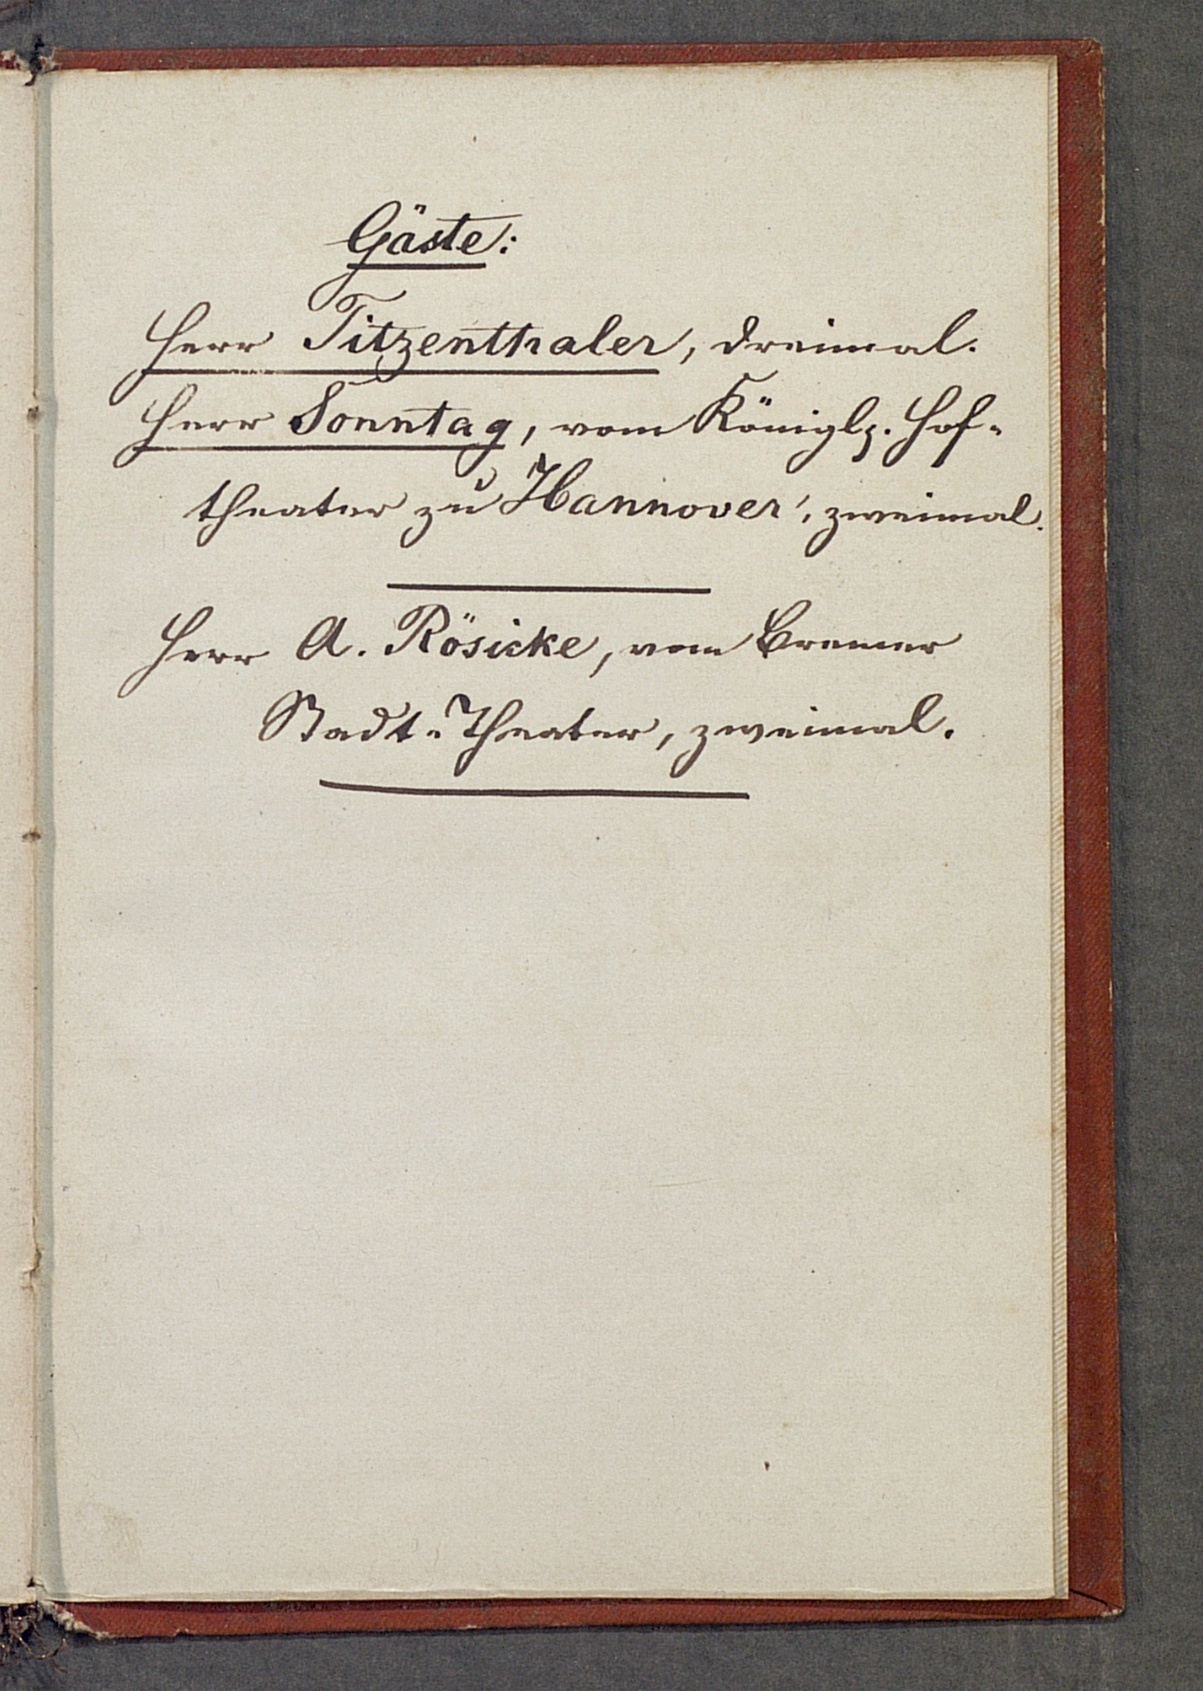 Gäste:
Herr Titzenthaler, dreimal.
Herr Sonntag, vom Königl. Hof-
theater zu Hannover, zweimal.
Herr A. Rösicke, vom Bremer
Stadt-Theater, zweimal.